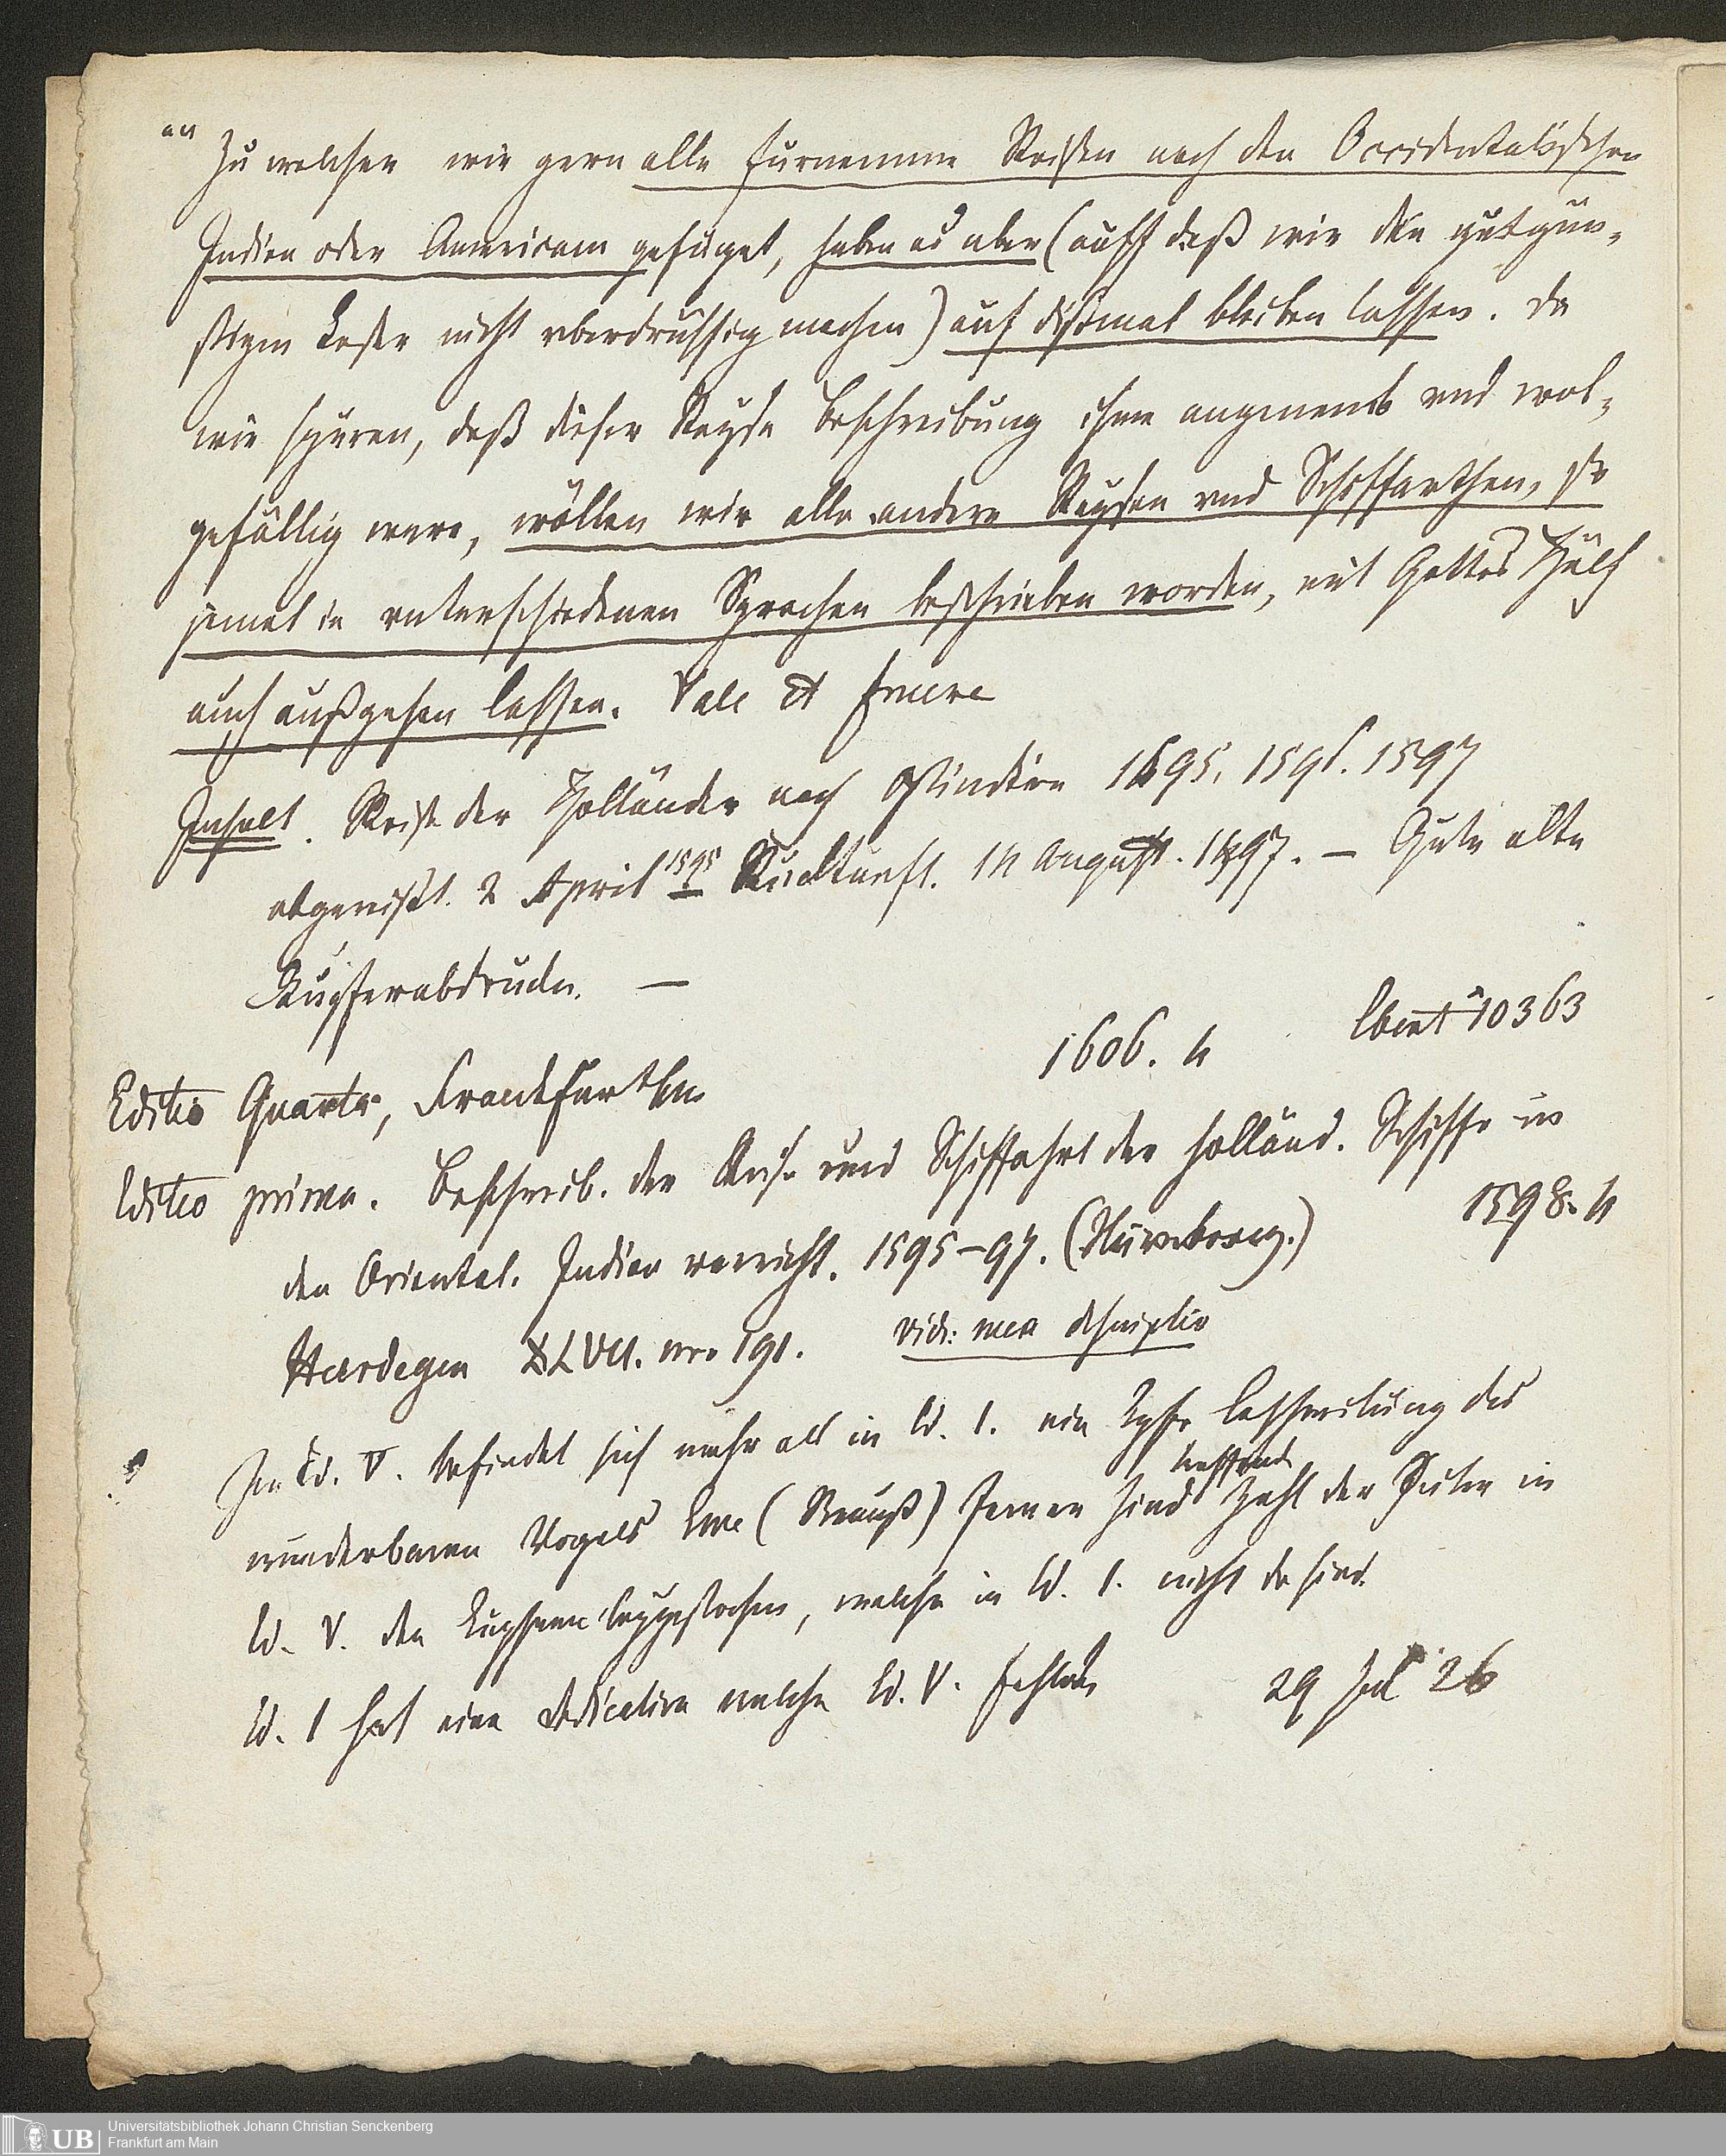 "" Zu welchen wir gern alle furnemme Reisen nach den Occidentalischen
Indien oder Americam gefüget, haben es aber (auff daß wir den gutgün-
stigen Leser nicht vberdrüssig machen) auf dißmal bleiben lassen. Da
wir spüren, daß dieser Reyse Beschreibung ihme angenemb vnd wol-
gefällig were, wöllen wir alle andere Reysen vnd Schiffarthen, so
jemal in vnterschiedenen Sprachen beschrieben worden, mit Gottes Hülf
auch außgehen lassen. Vale et fruere
Inhalt. Reise der Holländer nach Ostindien 1595. 1596. 1597
abgereist. 2 April 1595 Rückkunft. 14 August. 1597. — Gute alte
Kupferabdrucke. —
Editio Quarta, Franckfurt 1606. 4 Ebert 10363
Editio prima. Beschreib. der Reise und Schiffahrt der holländ. Schiffe in
den Oriental. Indien verricht. 1595–97. (Nürnberg.) 1598. 4
Heerdegen XLVII. nro 191. vid: mea descriptio
In Ed. V. befindet sich mehr als in Ed. 1. eine Beschreibung des
wunderbaren Vogels Eme (Strauß) Ferner sind Zahl der Seiten in
Ed. V. den Kupfern beygestochen, welche in Ed. 1. nicht da sind.
Ed. 1 hat eine Dedication welche Ed. V. fehlet. 29 Jul 26
Universitätsbibliothek Johann Christian Senckenberg
Frankfurt am Main
UB